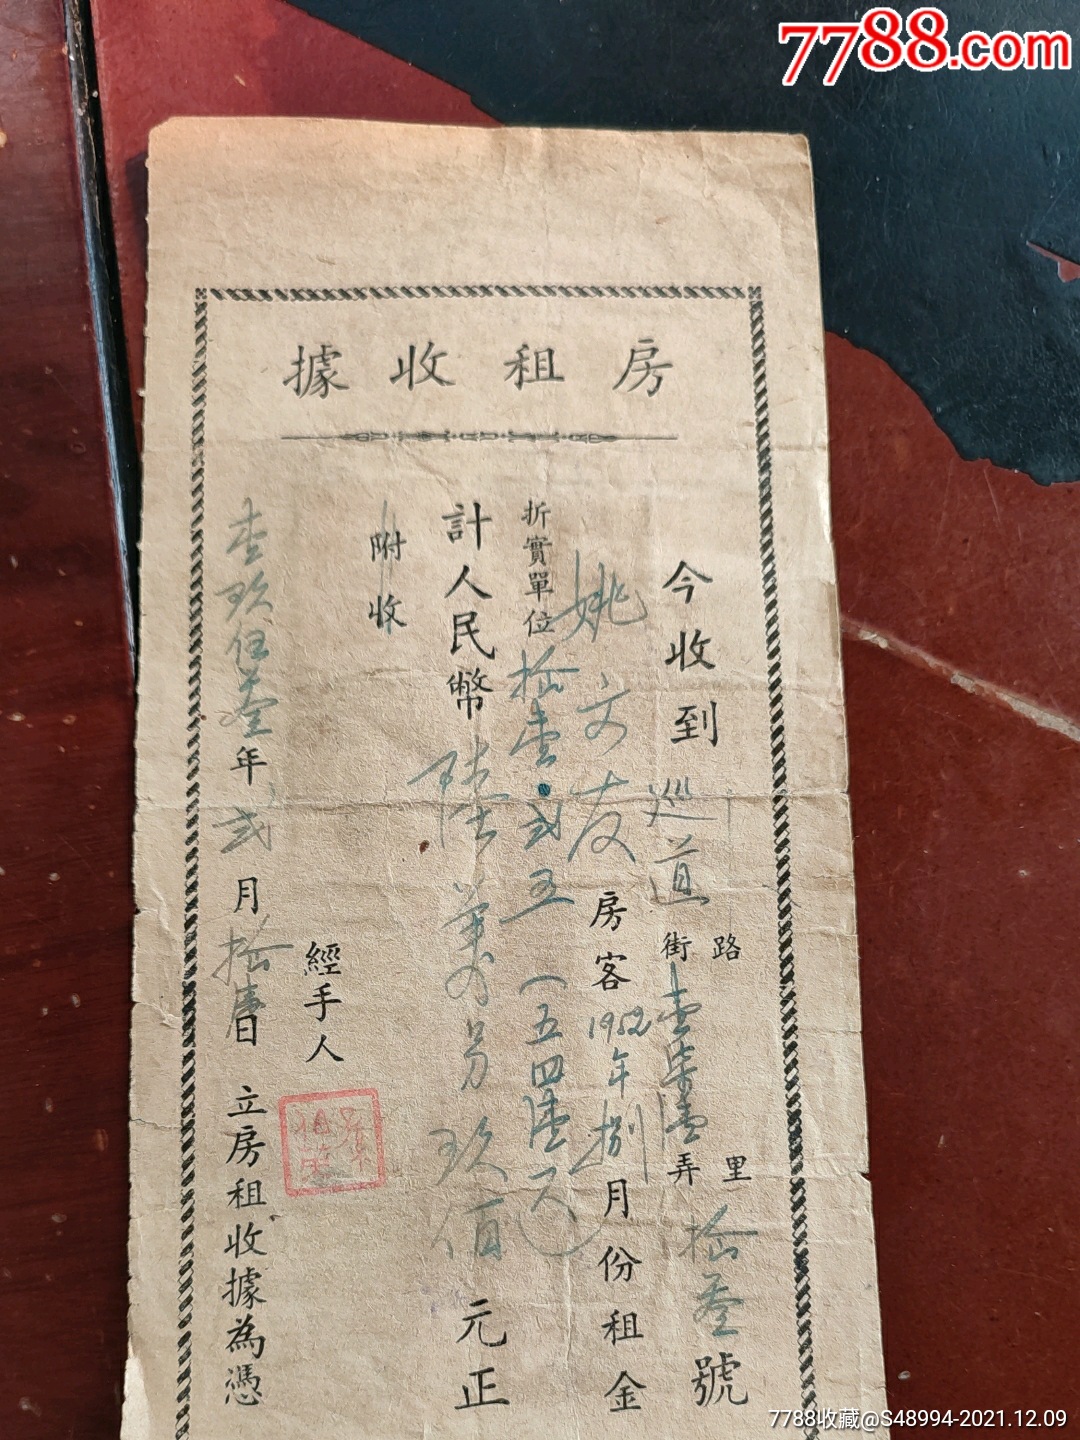 7788.com
房租收據
今收到巡道路街壹柒里弄拾叁號
姚文友房客1952年捌月份租金
折實單位拾壹.弍五 五四
計人民幣陸萬另玖佰元正
附收
經手人
壹玖伍叁年弍月拾日立房租收據為憑
7788收藏@S48994-2021.12.09